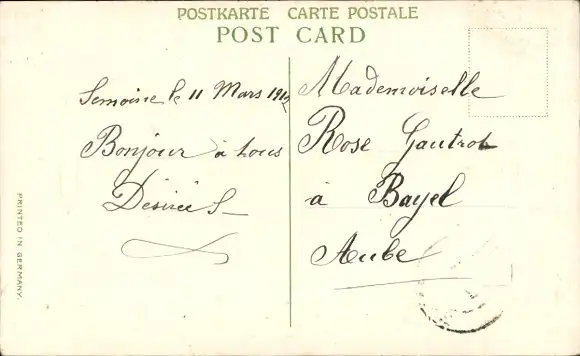 POSTKARTE CARTE POSTALE
POST CARD
Semoine le 11 Mars 1912
Bonjour à tous
Désirée S
Mademoiselle
Rose Gautrot
à Bayel
Aube
PRINTED IN GERMANY.